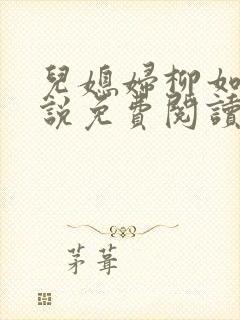 兒媳婦柳如
說免費閱讀
茅葺